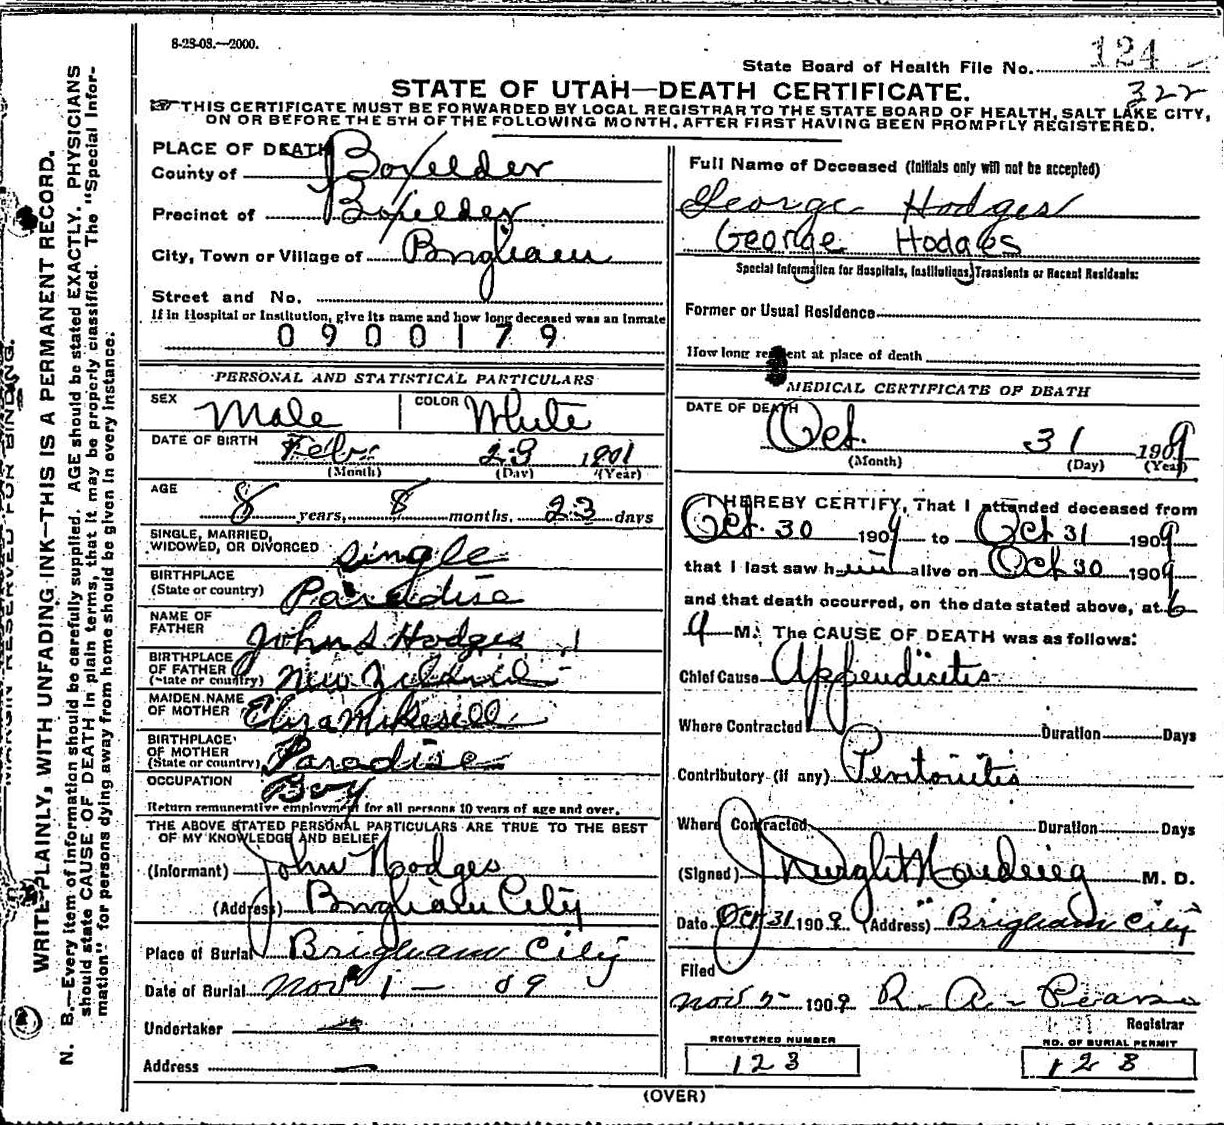 8-23-08.—2000.
State Board of Health File No. 124
STATE OF UTAH—DEATH CERTIFICATE.
322
THIS CERTIFICATE MUST BE FORWARDED BY LOCAL REGISTRAR TO THE STATE BOARD OF HEALTH, SALT LAKE CITY,
ON OR BEFORE THE 5TH OF THE FOLLOWING MONTH, AFTER FIRST HAVING BEEN PROMPTLY REGISTERED.
PLACE OF DEATH
County of Boxelder
Precinct of Boxelder
City, Town or Village of Brigham
Street and No.
If in Hospital or Institution, give its name and how long deceased was an Inmate
0900179
PERSONAL AND STATISTICAL PARTICULARS
SEX Male COLOR White
DATE OF BIRTH Feb. 23 1901
(Month) (Day) (Year)
AGE 8 years, 8 months, 23 days
SINGLE, MARRIED,
WIDOWED, OR DIVORCED Single
BIRTHPLACE
(State or country) Paradise
NAME OF
FATHER John S Hodges
BIRTHPLACE
OF FATHER
(State or country) New
MAIDEN NAME
OF MOTHER Eliza Mikesell
BIRTHPLACE
OF MOTHER
(State or country) Paradise
OCCUPATION Boy
Return remunerative employment for all persons 10 years of age and over.
THE ABOVE STATED PERSONAL PARTICULARS ARE TRUE TO THE BEST
OF MY KNOWLEDGE AND BELIEF
(Informant) John Hodges
(Address) Brigham City
Place of Burial Brigham City
Date of Burial Nov 1 — 09
Undertaker
Address
Full Name of Deceased (Initials only will not be accepted)
George Hodges
George Hodges
Special Information for Hospitals, Institutions, Transients or Recent Residents:
Former or Usual Residence
How long resident at place of death
MEDICAL CERTIFICATE OF DEATH
DATE OF DEATH Oct. 31 1909
(Month) (Day) (Year)
I HEREBY CERTIFY, That I attended deceased from
Oct. 30 1909 to Oct 31 1909
that I last saw him alive on Oct 30 1909
and that death occurred, on the date stated above, at 6
a M. The CAUSE OF DEATH was as follows:
Chief Cause Appendicitis
Where Contracted Duration Days
Contributory (if any) Peritonitis
Where Contracted Duration Days
(Signed) J Dwight Harding M. D.
Date Oct 31 1909 (Address) Brigham City
Filed
Nov 5 1909 R. A. Pearse
Registrar
REGISTERED NUMBER
123
NO. OF BURIAL PERMIT
128
(OVER)
MARGIN RESERVED FOR BINDING.
WRITE PLAINLY, WITH UNFADING INK—THIS IS A PERMANENT RECORD.
N. B.—Every item of information should be carefully supplied. AGE should be stated EXACTLY. PHYSICIANS
should state CAUSE OF DEATH in plain terms, that it may be properly classified. The "Special Infor-
mation" for persons dying away from home should be given in every instance.